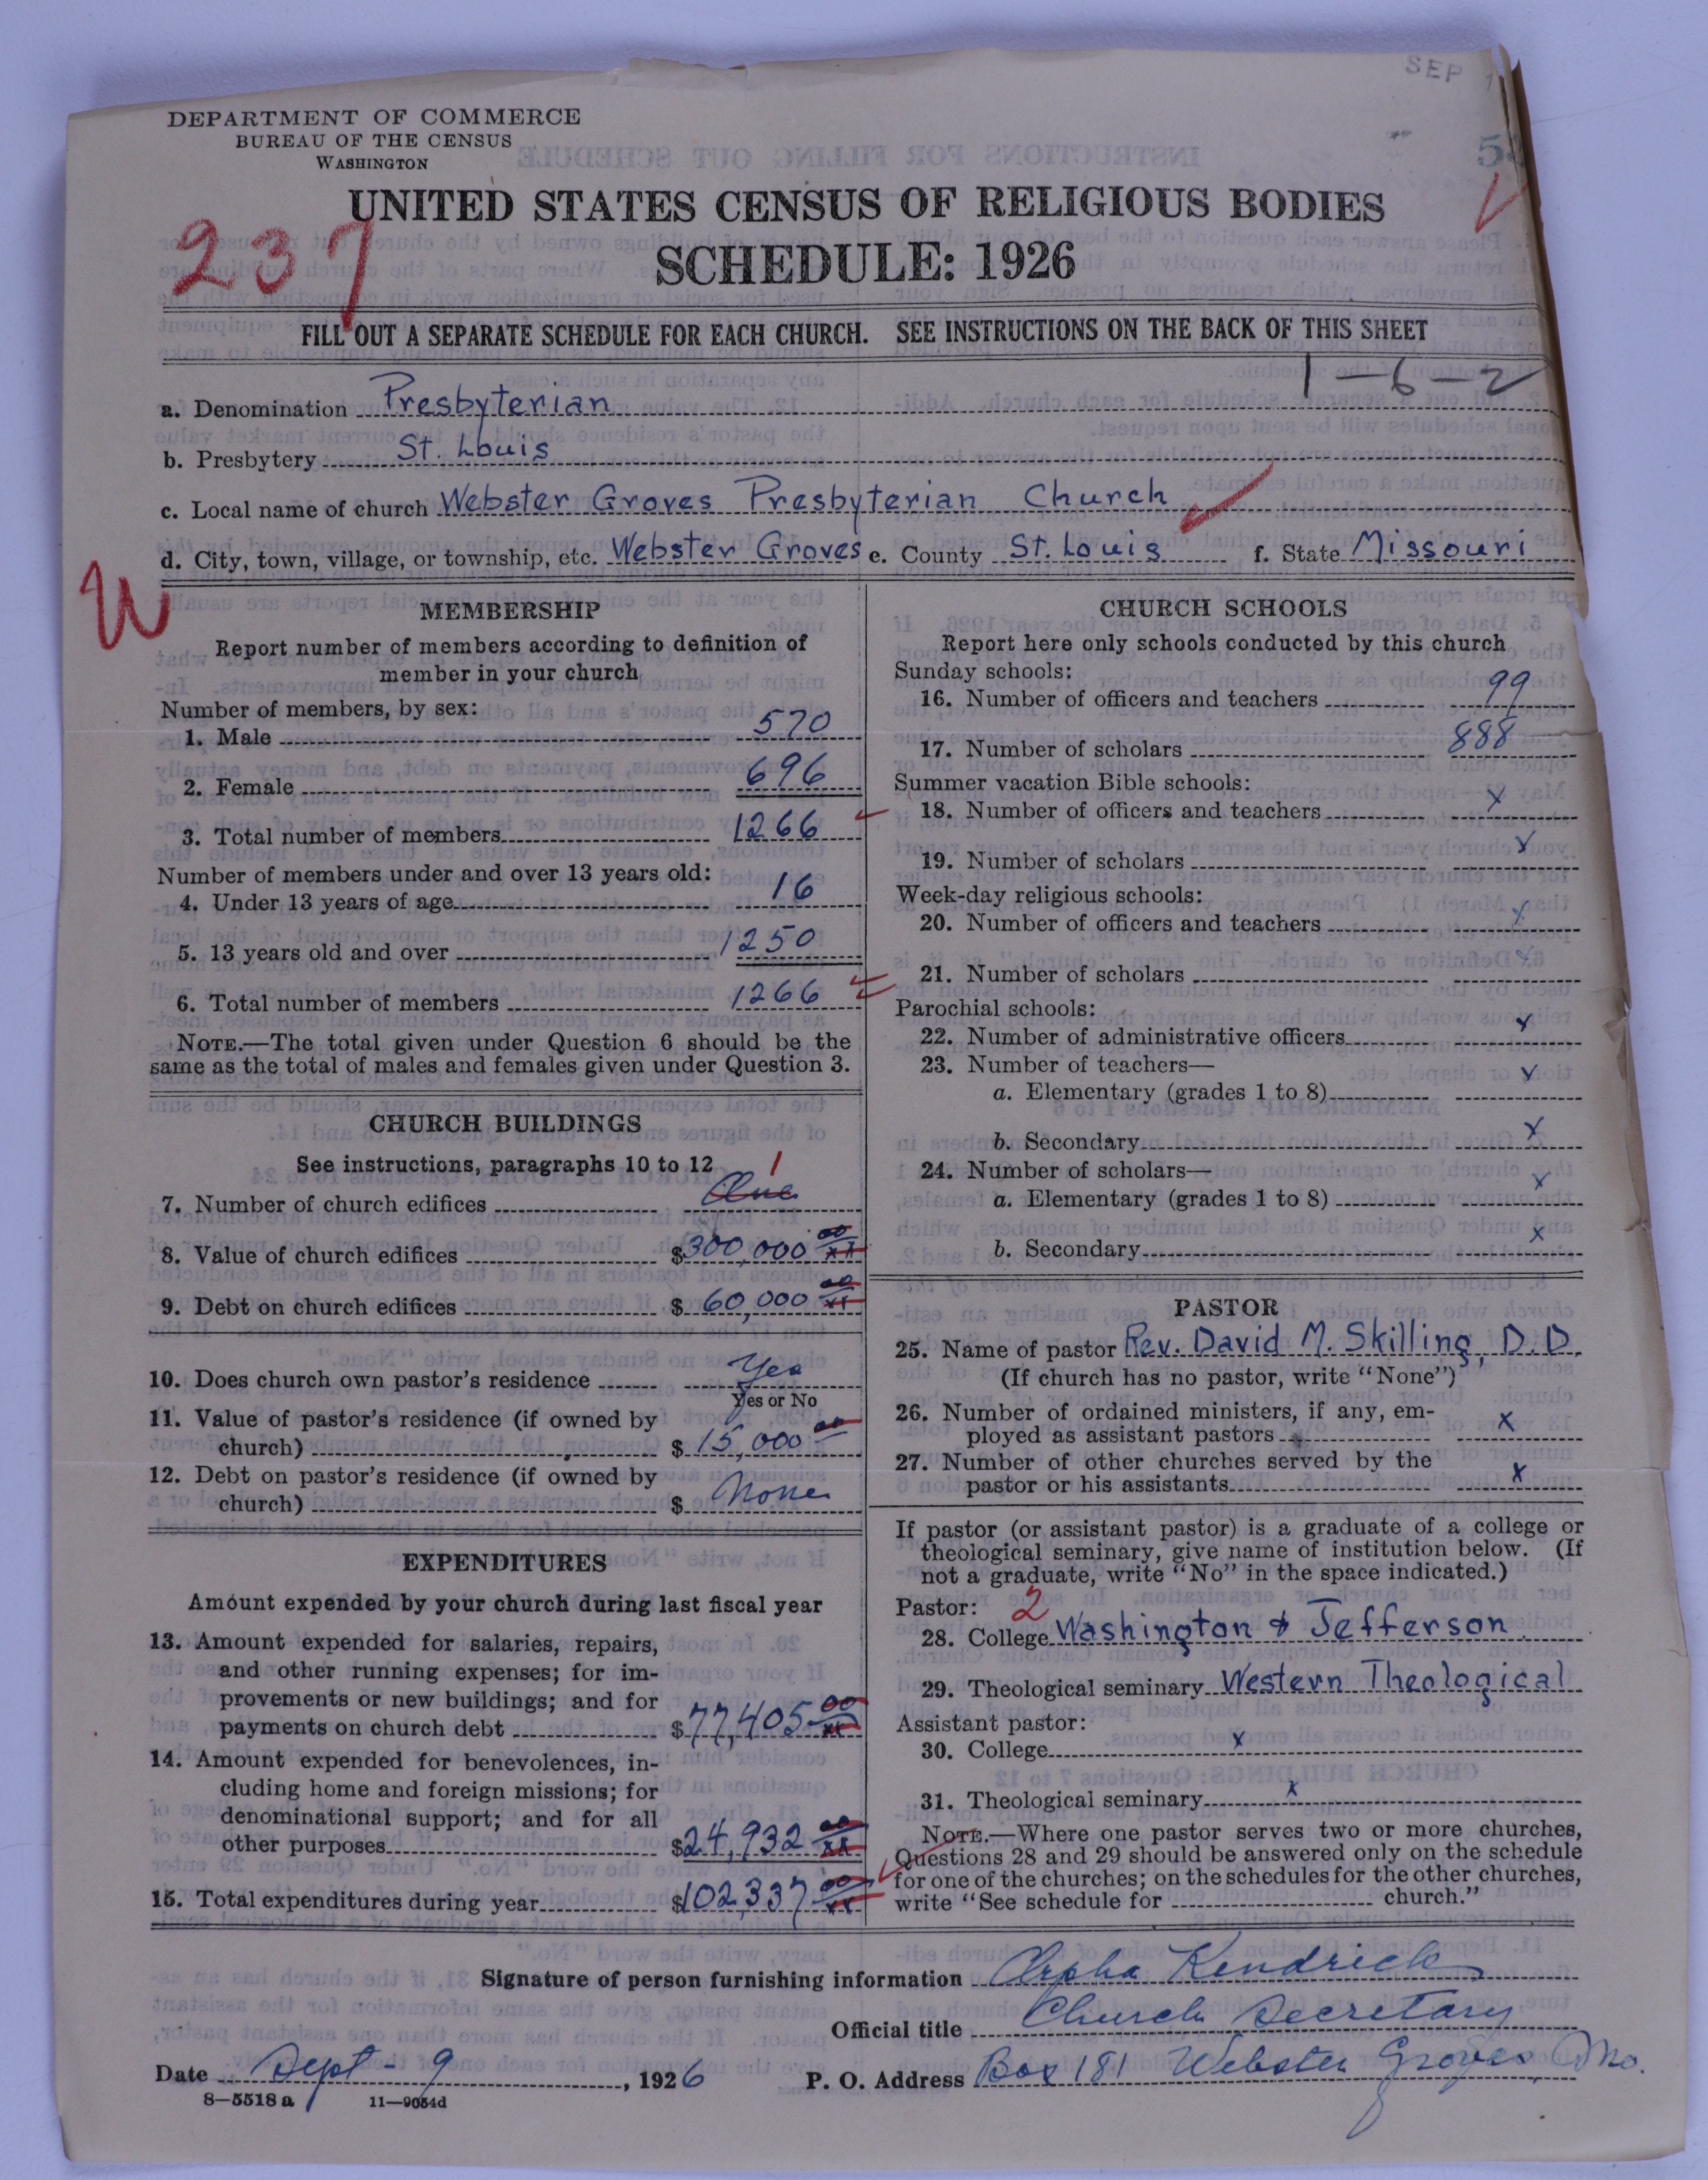 SEP 1
DEPARTMENT OF COMMERCE
BUREAU OF THE CENSUS
WASHINGTON
UNITED STATES CENSUS OF RELIGIOUS BODIES
237
SCHEDULE: 1926
FILL OUT A SEPARATE SCHEDULE FOR EACH CHURCH. SEE INSTRUCTIONS ON THE BACK OF THIS SHEET
1-6-2
a. Denomination Presbyterian
b. Presbytery St. Louis
c. Local name of church Webster Groves Presbyterian Church
d. City, town, village, or township, etc. Webster Groves e. County St. Louis f. State Missouri
W
MEMBERSHIP
Report number of members according to definition of
member in your church
Number of members, by sex:
1. Male 570
2. Female 696
3. Total number of members 1266
Number of members under and over 13 years old:
4. Under 13 years of age 16
5. 13 years old and over 1250
6. Total number of members 1266
NOTE.—The total given under Question 6 should be the
same as the total of males and females given under Question 3.
CHURCH BUILDINGS
See instructions, paragraphs 10 to 12
1
7. Number of church edifices One
8. Value of church edifices $300,000 00 xx
9. Debt on church edifices $ 60,000 00 xx
10. Does church own pastor's residence Yes
Yes or No
11. Value of pastor's residence (if owned by
church) $ 15,000 00
12. Debt on pastor's residence (if owned by
church) $ None
EXPENDITURES
Amount expended by your church during last fiscal year
13. Amount expended for salaries, repairs,
and other running expenses; for im-
provements or new buildings; and for
payments on church debt $77,405 00 xx
14. Amount expended for benevolences, in-
cluding home and foreign missions; for
denominational support; and for all
other purposes $24,932 00 xx
15. Total expenditures during year $102,337 00 xx
CHURCH SCHOOLS
Report here only schools conducted by this church
Sunday schools:
16. Number of officers and teachers 99
17. Number of scholars 888
Summer vacation Bible schools:
18. Number of officers and teachers x
19. Number of scholars x
Week-day religious schools:
20. Number of officers and teachers x
21. Number of scholars x
Parochial schools:
22. Number of administrative officers x
23. Number of teachers—
a. Elementary (grades 1 to 8) x
b. Secondary x
24. Number of scholars—
a. Elementary (grades 1 to 8) x
b. Secondary x
PASTOR
25. Name of pastor Rev. David M. Skilling, D.D.
(If church has no pastor, write "None")
26. Number of ordained ministers, if any, em-
ployed as assistant pastors x
27. Number of other churches served by the
pastor or his assistants x
If pastor (or assistant pastor) is a graduate of a college or
theological seminary, give name of institution below. (If
not a graduate, write "No" in the space indicated.)
Pastor: 2
28. College Washington & Jefferson
29. Theological seminary Western Theological
Assistant pastor:
30. College x
31. Theological seminary x
NOTE.—Where one pastor serves two or more churches,
Questions 28 and 29 should be answered only on the schedule
for one of the churches; on the schedules for the other churches,
write "See schedule for church."
Signature of person furnishing information Orpha Kendrick
Official title Church Secretary
Date Sept - 9, 1926 P. O. Address Box 181 Webster Groves, Mo.
8—5518 a 11—9054d